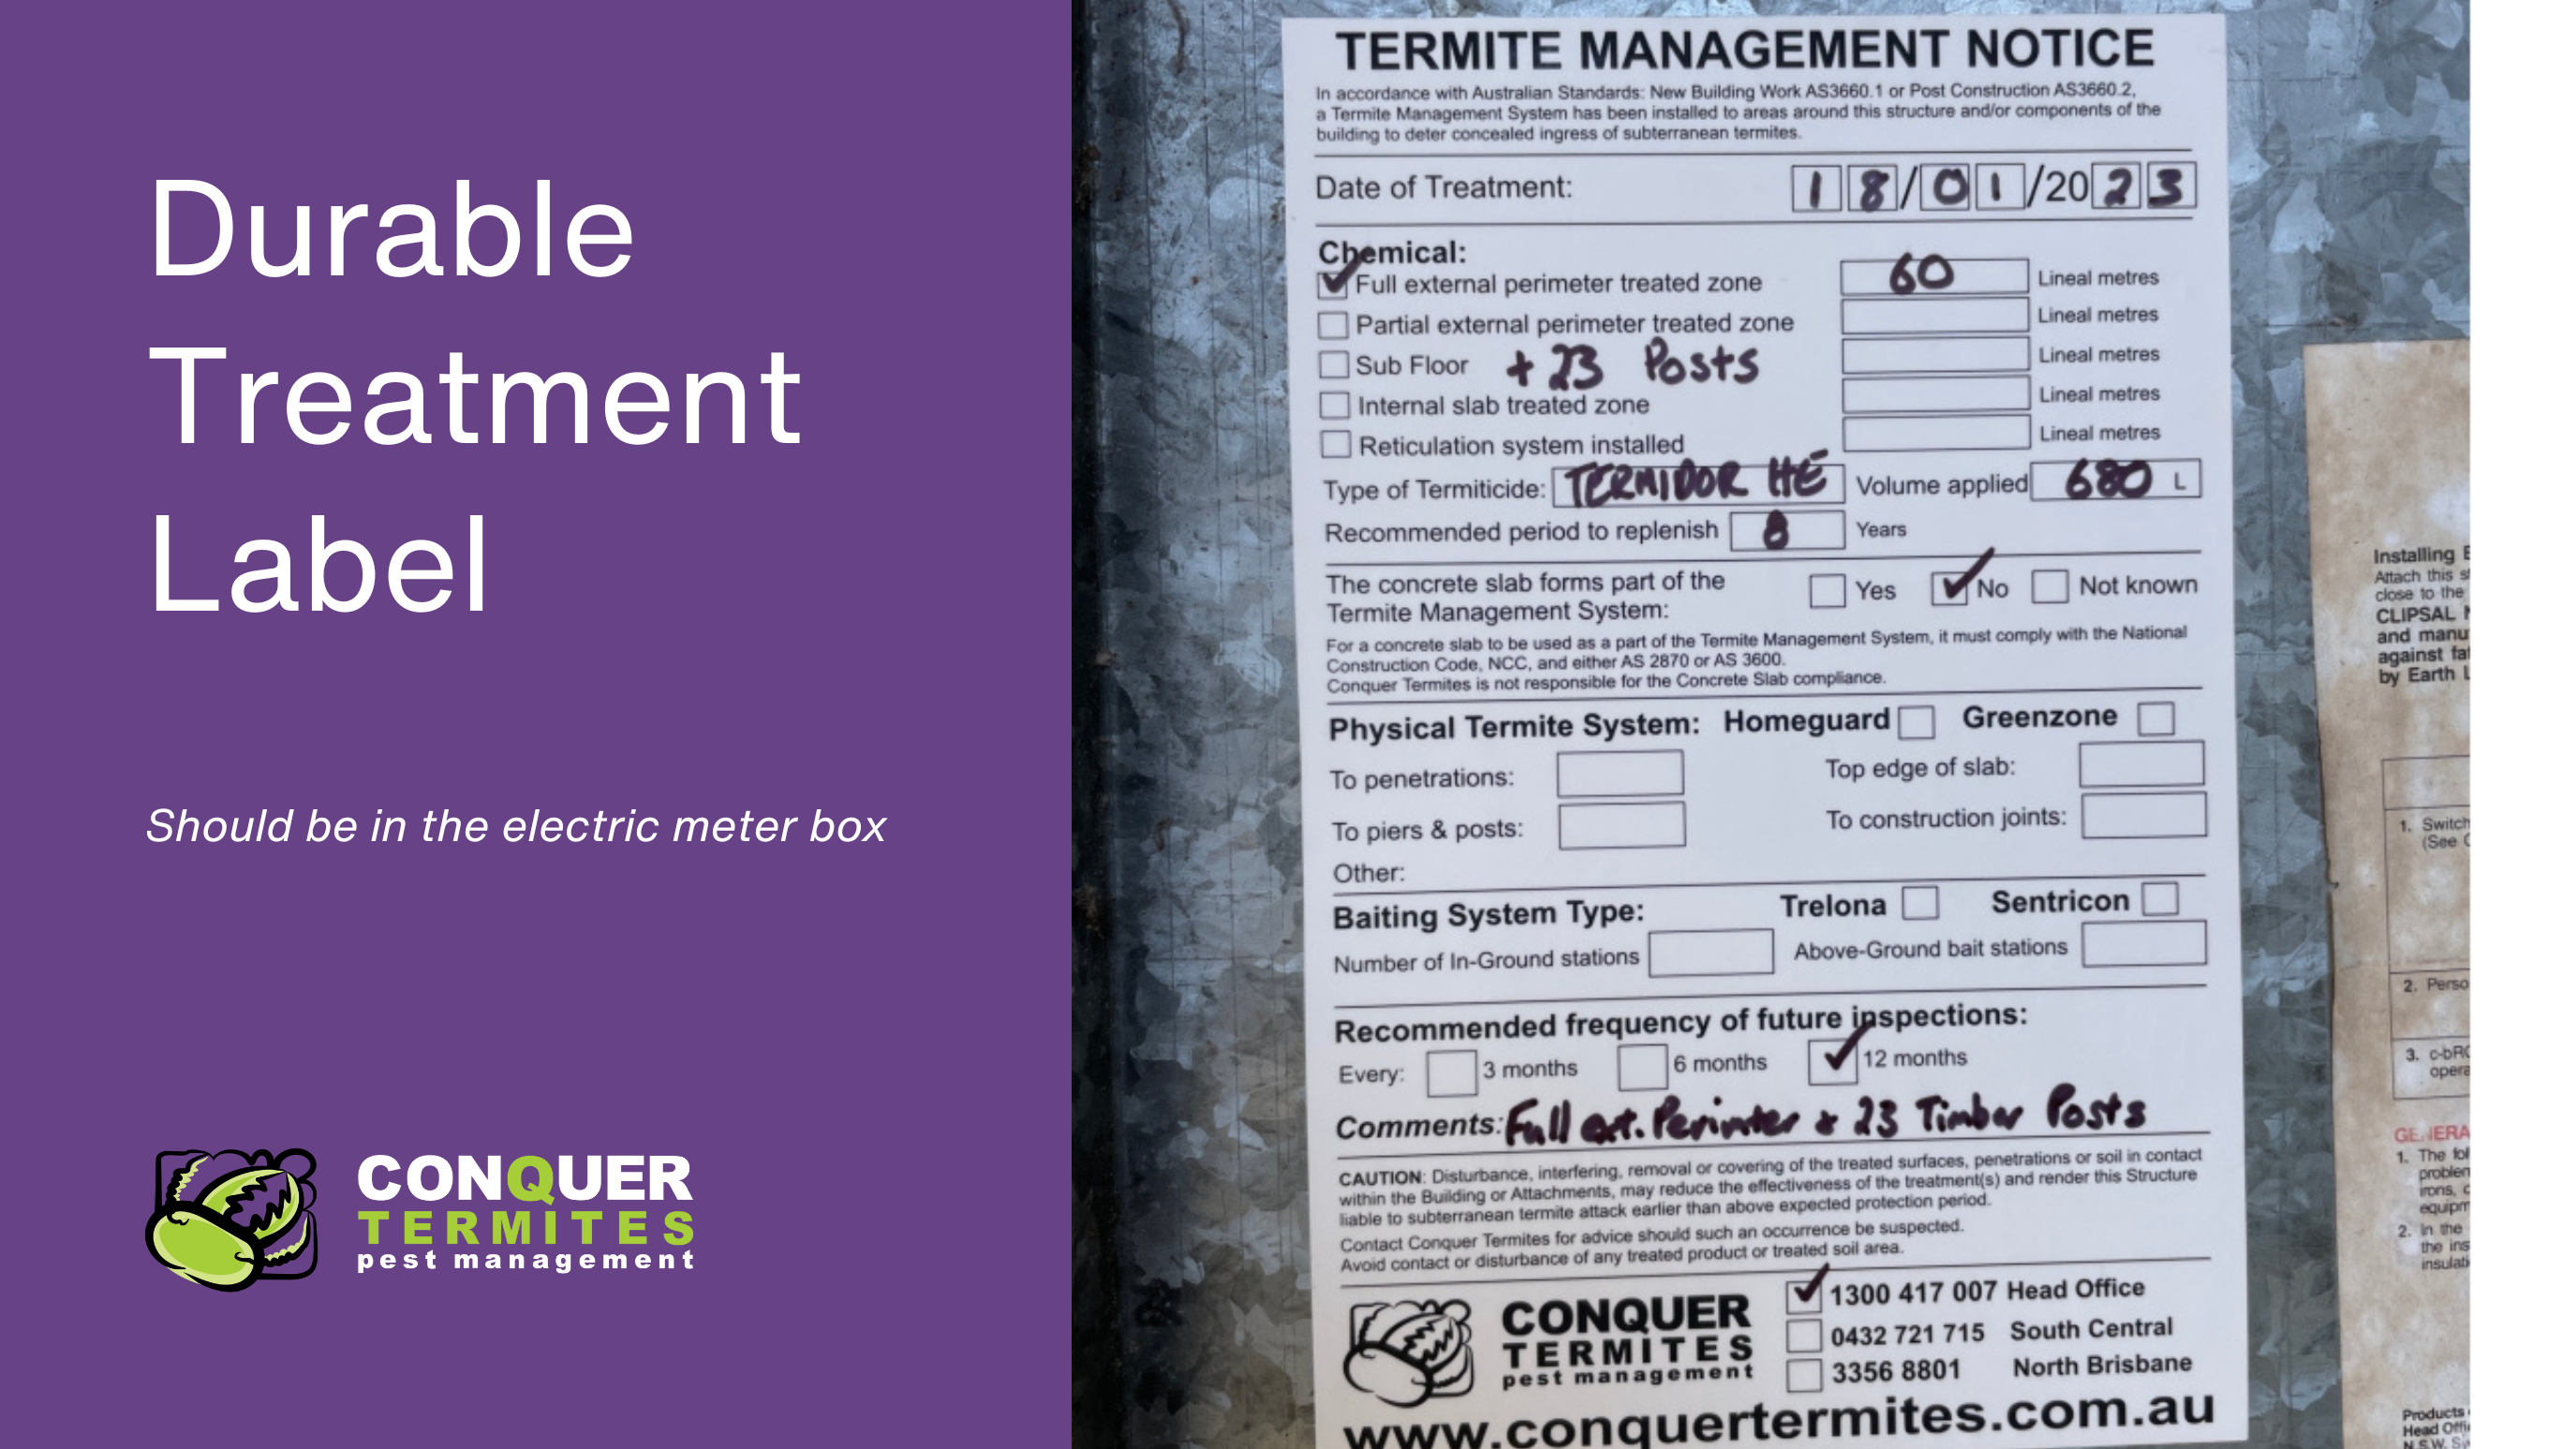 Durable
Treatment
Label
Should be in the electric meter box
CONQUER
TERMITES
pest management
TERMITE MANAGEMENT NOTICE
In accordance with Australian Standards: New Building Work AS3660.1 or Post Construction AS3660.2,
a Termite Management System has been installed to areas around this structure and/or components of the
building to deter concealed ingress of subterranean termites.
Date of Treatment: 18/01/2023
Chemical:
Full external perimeter treated zone 60 Lineal metres
Partial external perimeter treated zone Lineal metres
Sub Floor + 23 Posts Lineal metres
Internal slab treated zone Lineal metres
Reticulation system installed Lineal metres
Type of Termiticide: TERMIDOR HE Volume applied 680 L
Recommended period to replenish 8 Years
The concrete slab forms part of the
Termite Management System: Yes No Not known
For a concrete slab to be used as a part of the Termite Management System, it must comply with the National
Construction Code, NCC, and either AS 2870 or AS 3600.
Conquer Termites is not responsible for the Concrete Slab compliance.
Physical Termite System: Homeguard Greenzone
To penetrations: Top edge of slab:
To piers & posts: To construction joints:
Other:
Baiting System Type: Trelona Sentricon
Number of In-Ground stations Above-Ground bait stations
Recommended frequency of future inspections:
Every: 3 months 6 months 12 months
Comments: Full ext. Perimter + 23 Timber Posts
CAUTION: Disturbance, interfering, removal or covering of the treated surfaces, penetrations or soil in contact
within the Building or Attachments, may reduce the effectiveness of the treatment(s) and render this Structure
liable to subterranean termite attack earlier than above expected protection period.
Contact Conquer Termites for advice should such an occurrence be suspected.
Avoid contact or disturbance of any treated product or treated soil area.
CONQUER
TERMITES
pest management
1300 417 007 Head Office
0432 721 715 South Central
3356 8801 North Brisbane
www.conquertermites.com.au
Installing
Attach this
close to the
CLIPSAL
and manu
against
by Earth
1. Switch
(See
2. Perso
3.
opera
1. The
problem
irons,
equipm
2. In the
the ins
insulati
Products
Head
N.S.W.